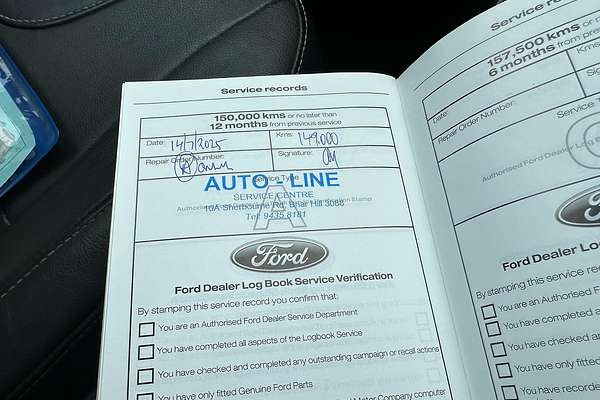 Service records
150,000 kms or no later than
12 months from previous service
Date: 14/7/2025
Kms: 149,000
Repair Order Number:
Signature:
Service Type
A
AUTO-LINE
SERVICE CENTRE
10A Sherbourne Rd, Briar Hill 3088
Tel: 9435 8181
Ford
Ford Dealer Log Book Service Verification
By stamping this service record you confirm that:
You are an Authorised Ford Dealer Service Department
You have completed all aspects of the Logbook Service
You have checked and completed any outstanding campaign or recall actions
You have only fitted Genuine Ford Parts
Motor Company computer
Service records
157,500 kms or
6 months from previous
Date:
Kms:
Repair Order Number:
Service Type
Authorised Ford Dealer
Ford Dealer Log Book
By stamping this service record
You are an Authorised
You have completed all
You have checked an
You have only fitted
You have recorded